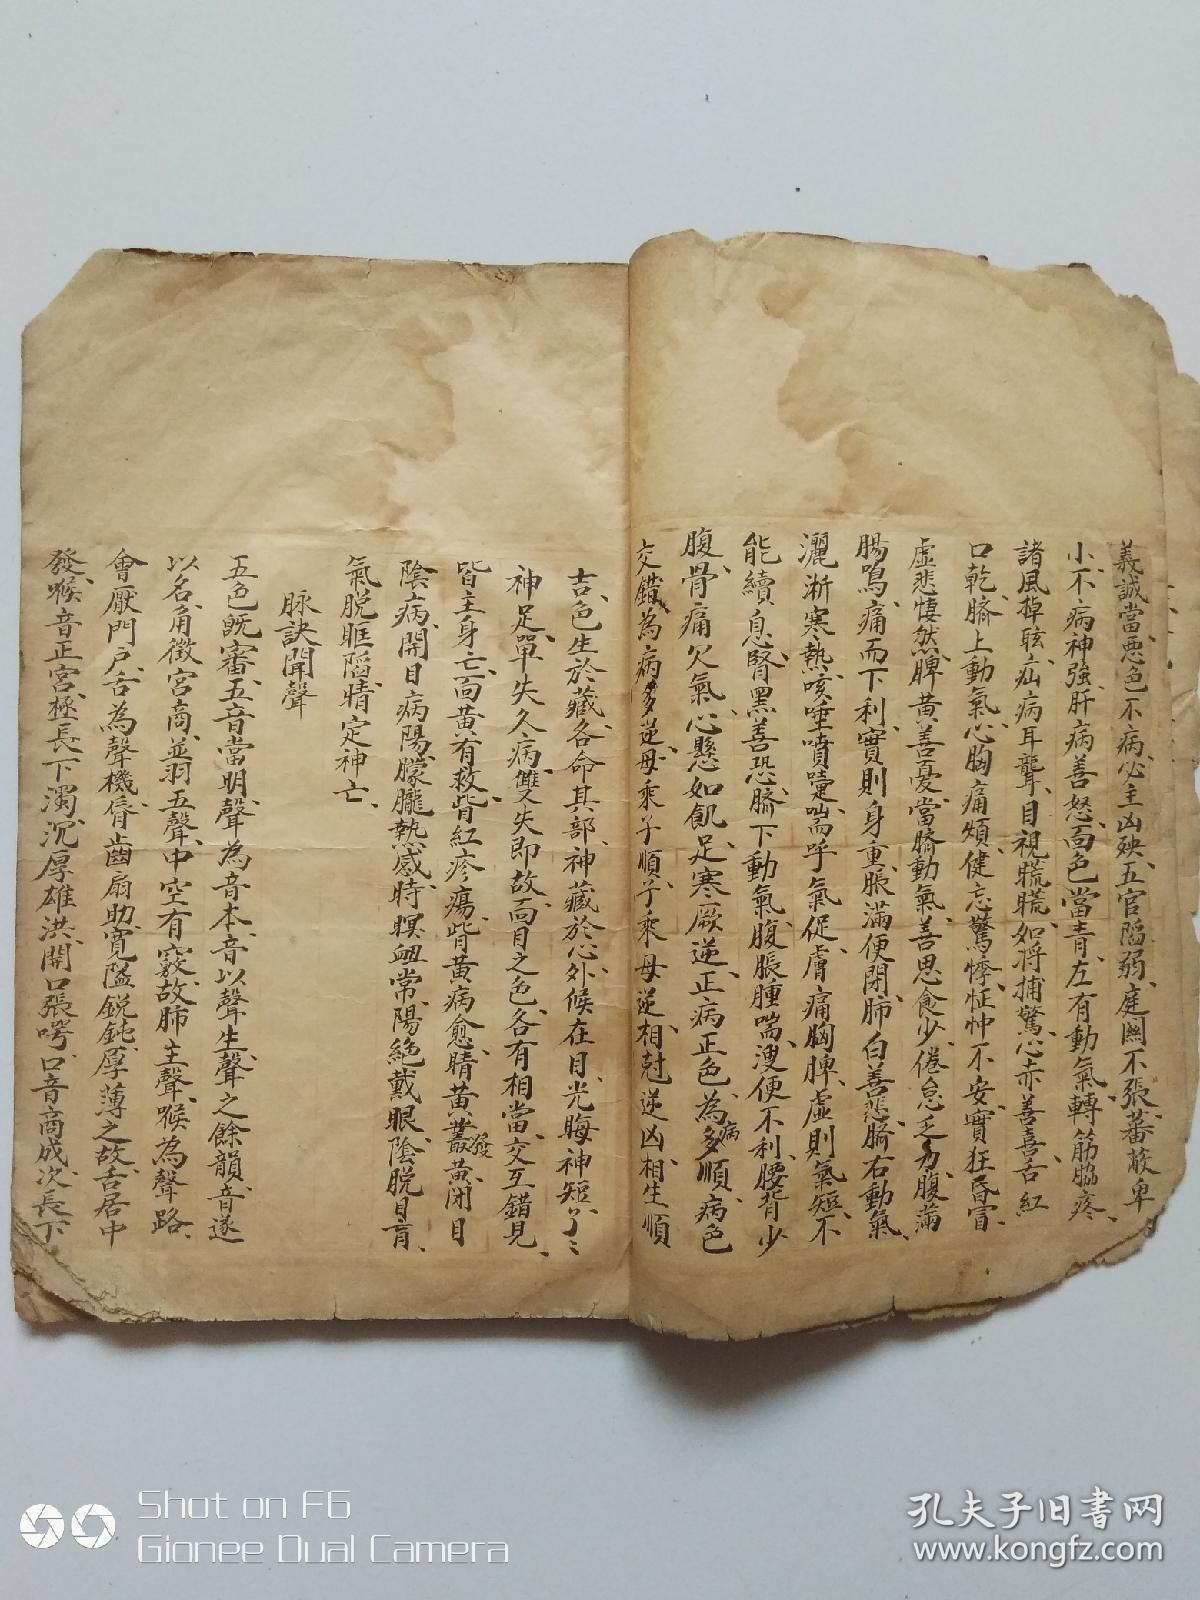 義誠當惡色不病必主凶殃五官陷弱庭闕不張蕃蔽卑
小不病神強肝病善怒面色當青左有動氣轉筋脇疼
諸風掉眩疝病耳聾目視䀮䀮如將捕驚心赤善喜舌紅
口乾臍上動氣心胸痛煩健忘驚悸怔忡不安實狂昏冒
虛悲悽然脾黃善憂當臍動氣善思食少倦怠乏力腹滿
腸鳴痛而下利實則身重脹滿便閉肺白善悲臍右動氣
灑淅寒熱咳唾噴嚏喘呼氣促膚痛胸脾虛則氣短不
能續息腎黑善恐臍下動氣腹脹腫喘溲便不利腰背少
腹骨痛欠氣心懸如飢足寒厥逆正病正色為病多順病色
交錯為病多逆母乘子順子乘母逆相尅逆凶相生順
吉色生於藏各命其部神藏於心外候在目光晦神短了了
神足單失久病雙失即故面目之色各有相當交互錯見
皆主身亡面黃有救眥紅疹瘍眥黃病愈睛黃發黃閉目
陰病開目病陽朦朧熱盛時瞑衄常陽絕戴眼陰脫目盲
氣脫眶陷睛定神亡
脉訣聞聲
五色既審五音當明聲為音本音以聲生聲之餘韻音遂
以名角徵宮商並羽五聲中空有竅故肺主聲喉為聲路
會厭門戶舌為聲機唇齒扇助寬隘銳鈍厚薄之故舌居中
發喉音正宮極長下濁沉厚雄洪開口張呺口音商成次長下
Shot on F6
Gionee Dual Camera
孔夫子旧书网
www.kongfz.com